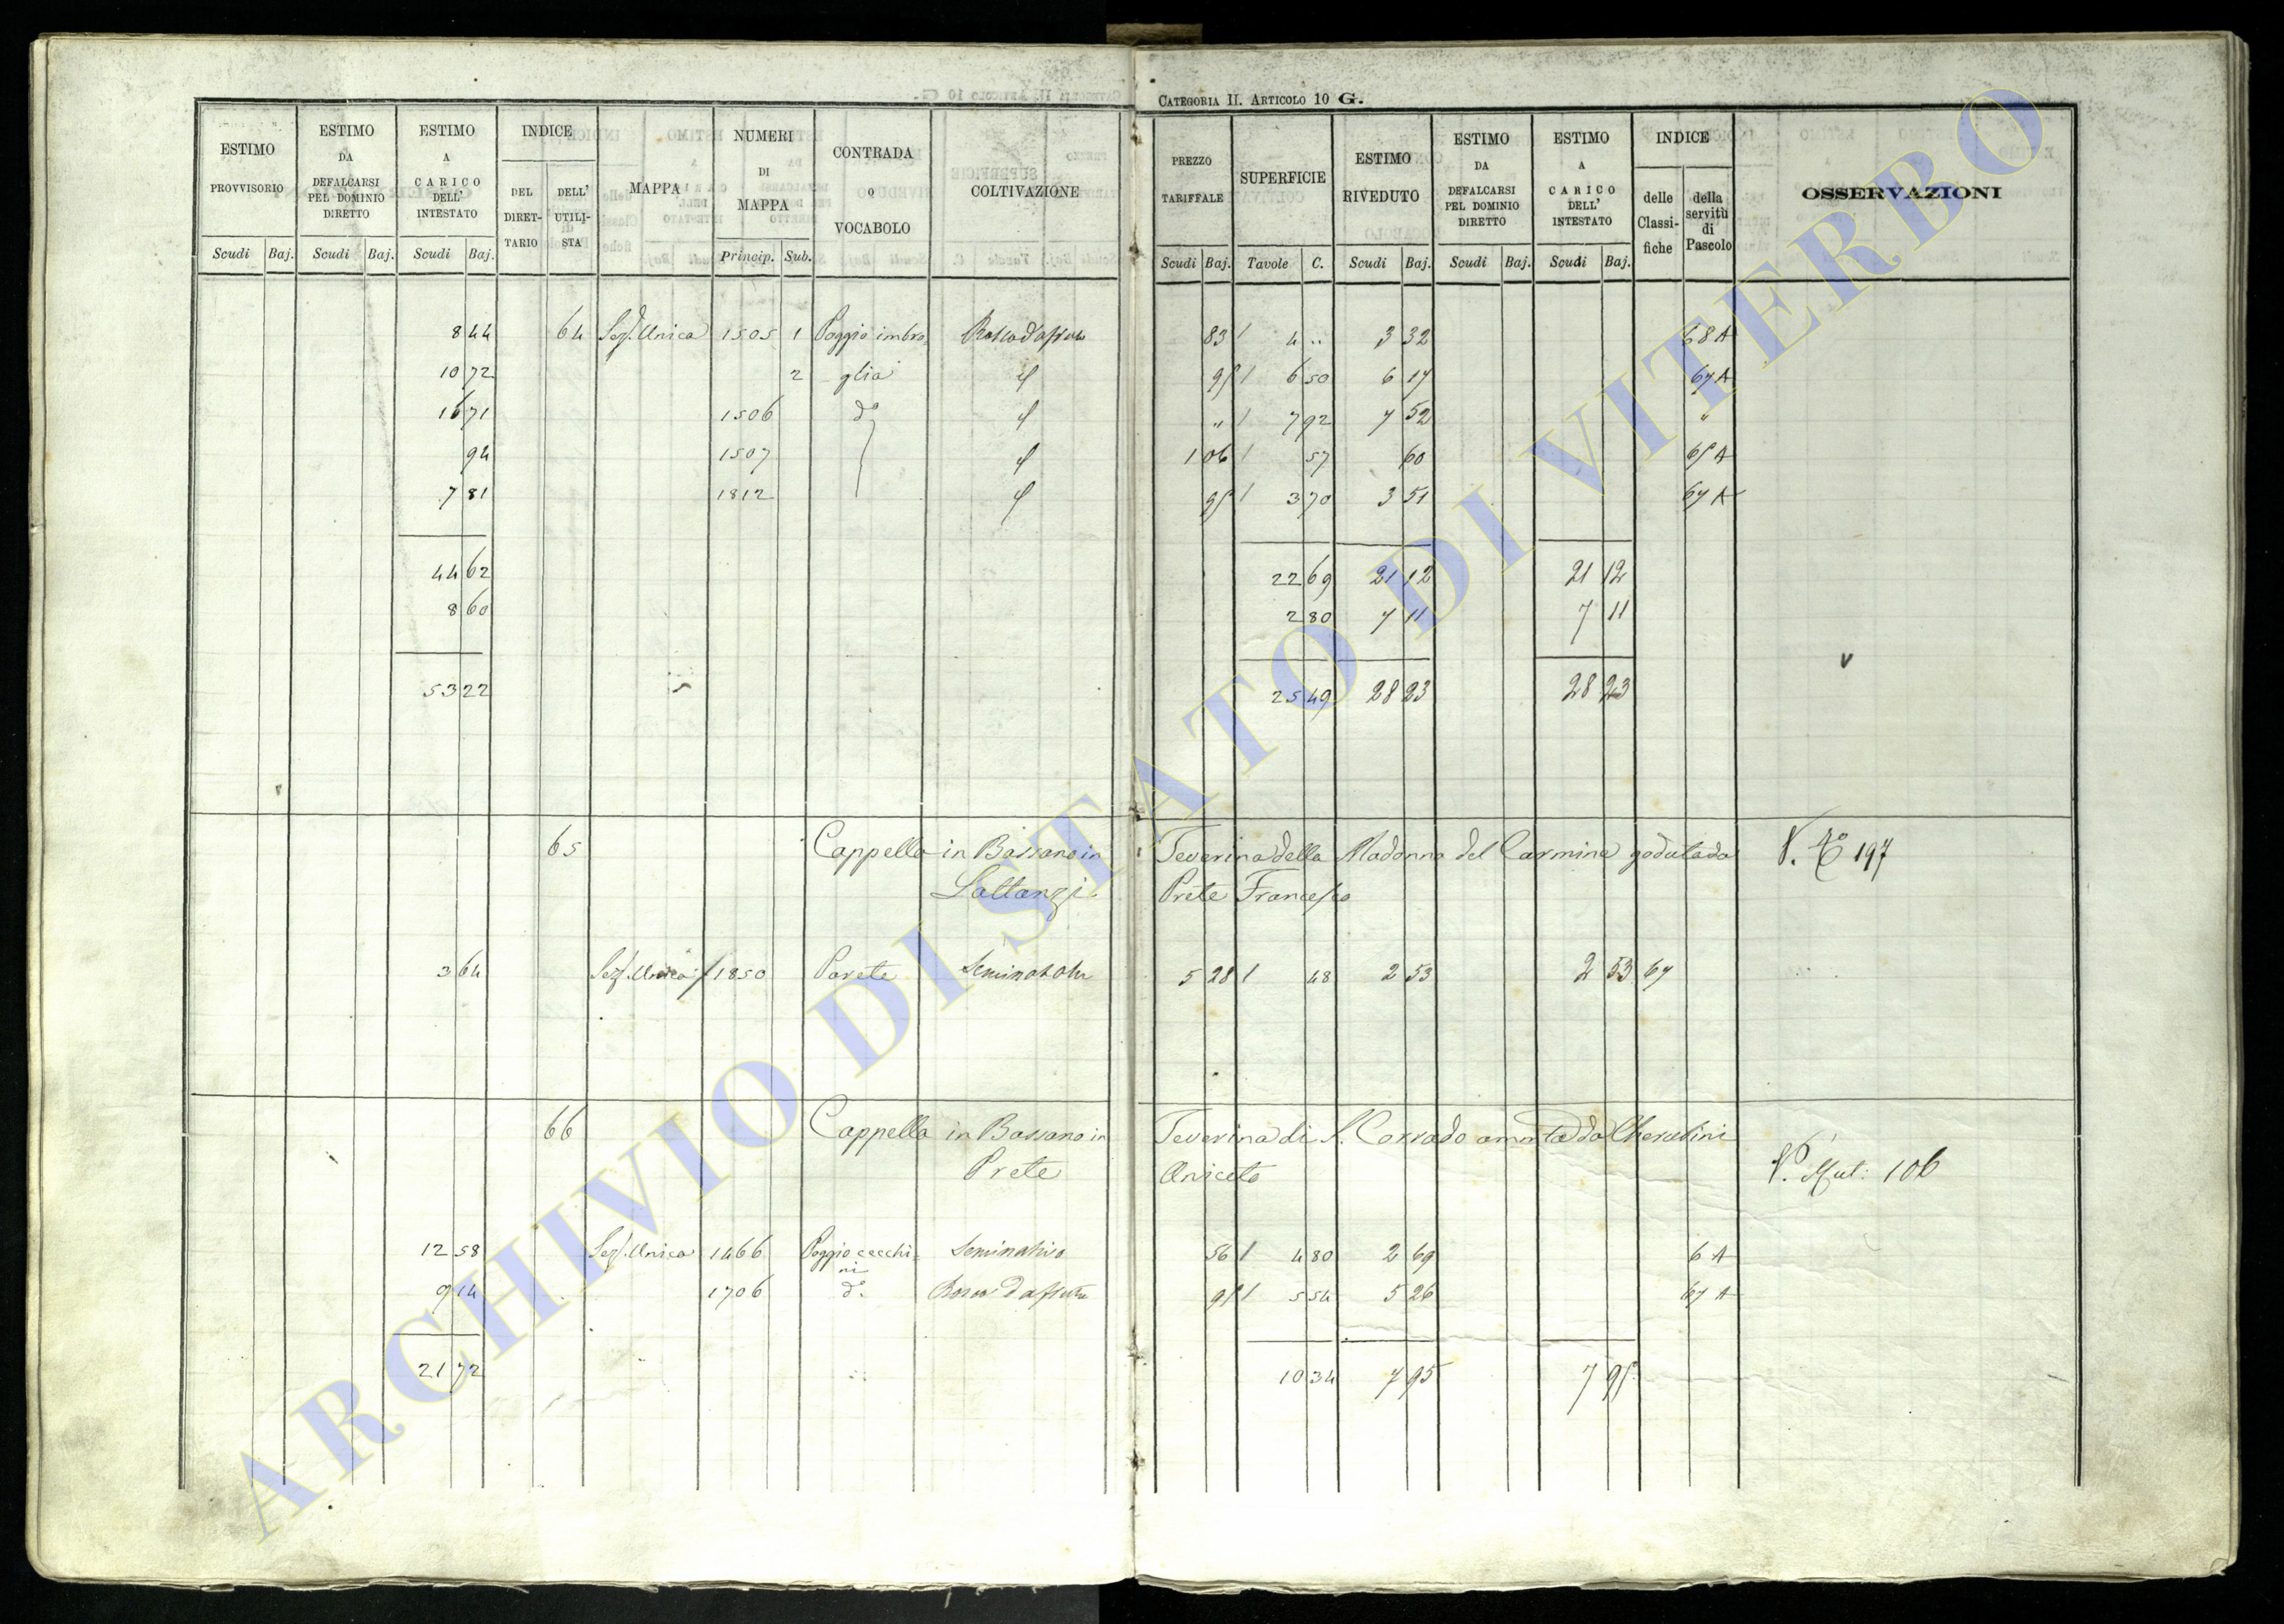 CATEGORIA II. ARTICOLO 10 G.
ESTIMO PROVVISORIO Scudi Baj.
ESTIMO DA DEFALCARSI PEL DOMINIO DIRETTO Scudi Baj.
ESTIMO A CARICO DELL' INTESTATO Scudi Baj.
INDICE DEL DIRET- TARIO DELL' UTILI- STA
MAPPA
NUMERI DI MAPPA Princip. Sub.
CONTRADA O VOCABOLO
COLTIVAZIONE
PREZZO TARIFFALE Scudi Baj.
SUPERFICIE Tavole C.
ESTIMO RIVEDUTO Scudi Baj.
ESTIMO DA DEFALCARSI PEL DOMINIO DIRETTO Scudi Baj.
ESTIMO A CARICO DELL' INTESTATO Scudi Baj.
INDICE delle Classi- fiche della servitù di Pascolo
OSSERVAZIONI
8 44 64 Sez. Unica 1505 1 Poggio imbro= 83 4 " 3 32 68 A
10 72 2 glia 95 6 50 6 17 67 A
16 71 1506 d° " 7 92 7 52 "
94 1507 1 06 57 60 65 A
7 81 1812 95 3 70 3 51 67 A
44 62 22 69 21 12 21 12
8 60 2 80 7 11 7 11
53 22 25 49 28 23 28 23
65 Cappella in Bassano in Teverina della Madonna del Carmine goduta da V. 197
Lattanzi Prete Francesco
3 64 Sez. Unica 1850 Parete Seminativo 5 28 48 2 53 2 53 67
66 Cappella in Bassano in Teverina di S. Corrado da Cherubini
Prete Aniceto V. Mut: 106
12 58 Sez. Unica 1466 Poggio cecchi= Seminativo 56 4 80 2 69 6 A
ni
9 14 1706 d° 95 5 54 5 26 67 A
21 72 10 34 7 95 7 95
ARCHIVIO DI STATO DI VITERBO